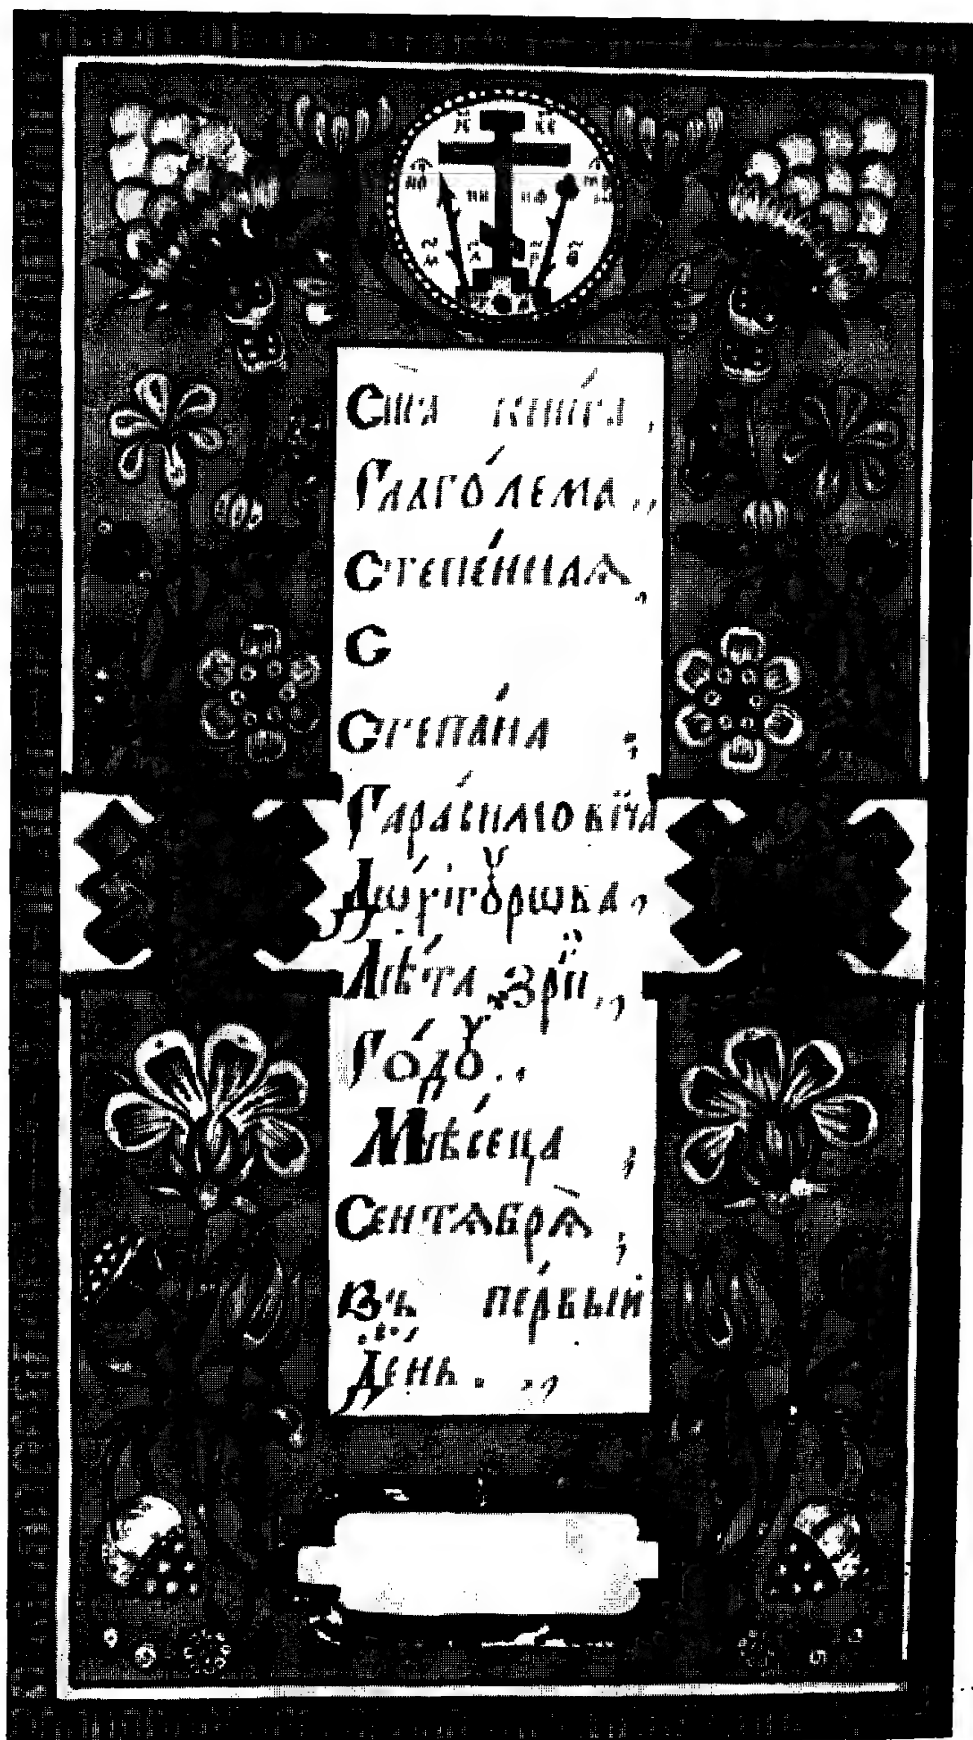 І҃С Х҃С
Сїѧ̀ кни́га,
Глаго́лема,,
Степе́ннаѧ,
С
Степа́на ;
Гара́симовїча
Лѣ́та ҂зрп̈,,
Го́дꙋ..
Мѣ́сеца ;
Сентѧбрѧ̀ ;
Въ пе́рвый
де́нь. .,,